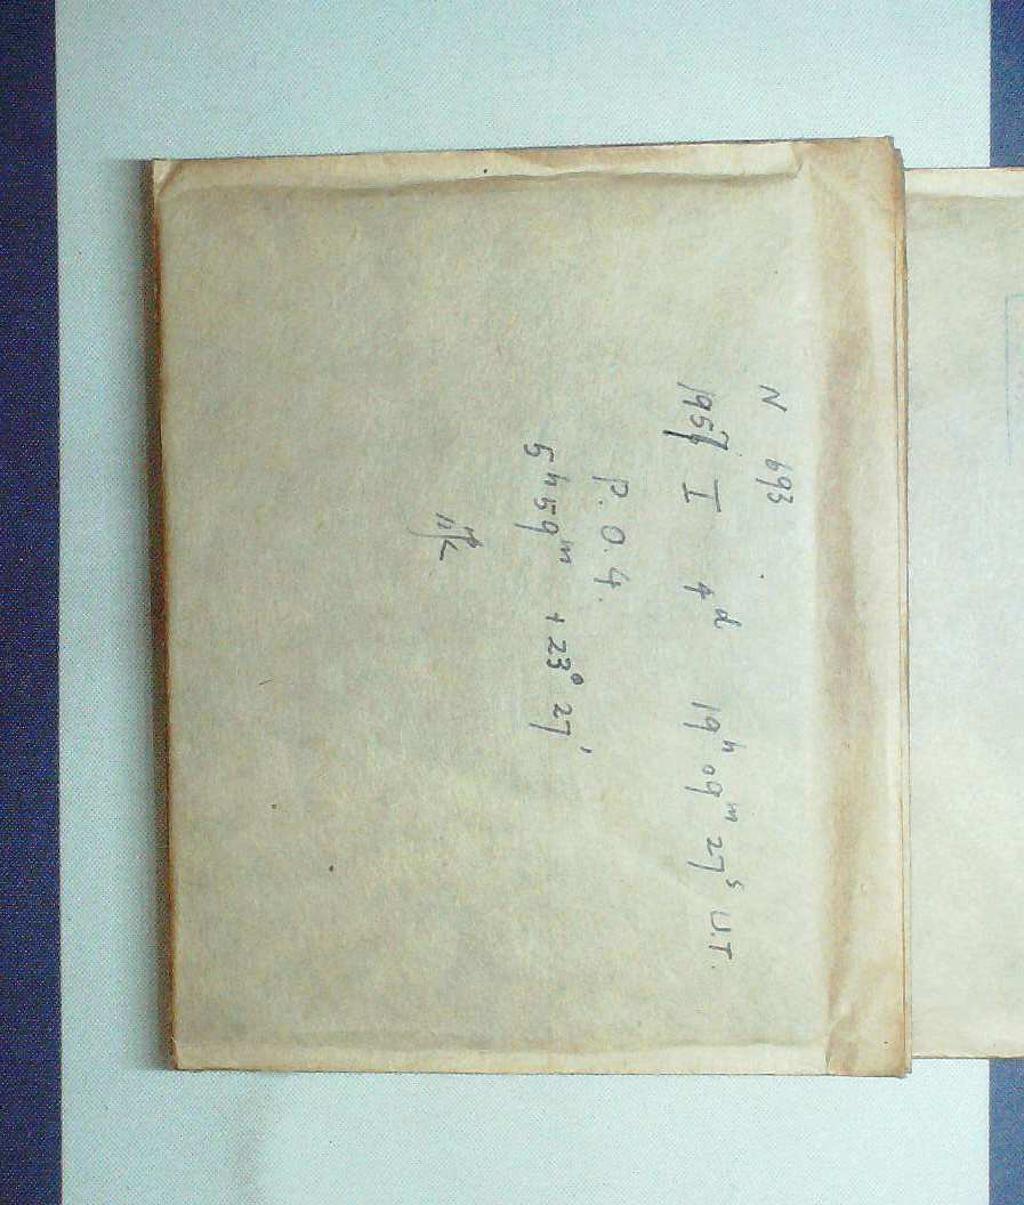 N 693
1957 I 4ᵈ 19ʰ 09ᵐ 27ˢ U.T.
P.O.4.
5ʰ 59ᵐ +23° 27'